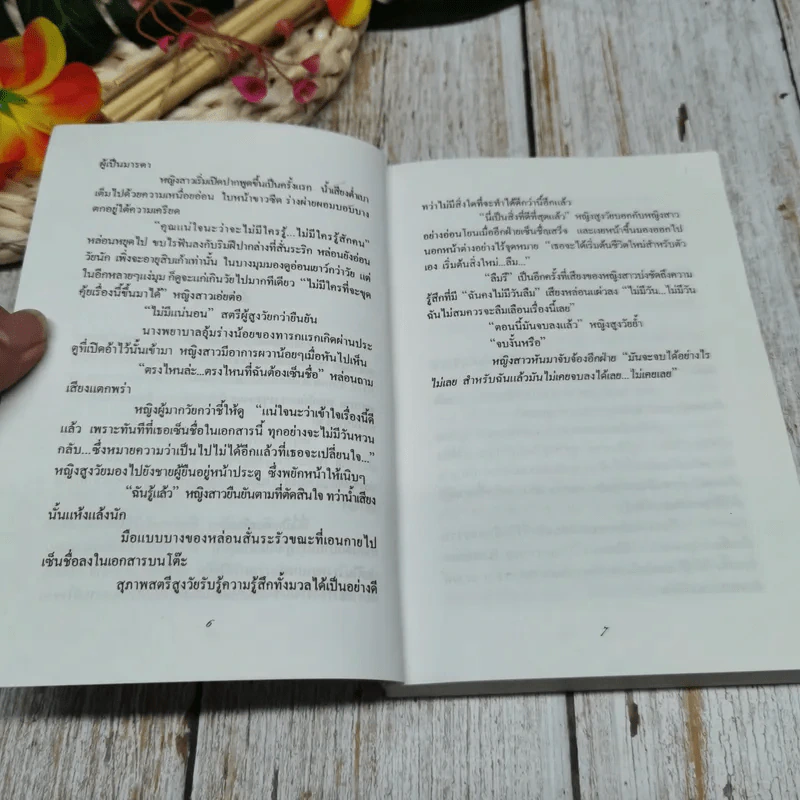 ผู้เป็นมารดา
หญิงสาวเริ่มเปิดปากพูดขึ้นเป็นครั้งแรก น้ำเสียงต่ำเบา
เต็มไปด้วยความเหนื่อยอ่อน ใบหน้าขาวซีด ร่างผ่ายผอมบอบบาง
ตกอยู่ใต้ความเครียด
“คุณแน่ใจนะว่าจะไม่มีใครรู้...ไม่มีใครรู้สักคน”
หล่อนหยุดไป ขบไรฟันลงกับริมฝีปากล่างที่สั่นระริก หล่อนยังอ่อน
วัยนัก เพิ่งจะอายุสิบเก้าเท่านั้น ในบางมุมมองดูอ่อนเยาว์กว่าวัย แต่
ในอีกหลายๆแง่มุม ก็ดูจะแก่เกินวัยไปมากทีเดียว “ไม่มีใครที่จะขุด
คุ้ยเรื่องนี้ขึ้นมาได้” หญิงสาวเอ่ยต่อ
“ไม่มีแน่นอน” สตรีผู้สูงวัยกว่ายืนยัน
นางพยาบาลอุ้มร่างน้อยของทารกแรกเกิดผ่านประ
ตูที่เปิดอ้าไว้นั้นเข้ามา หญิงสาวมีอาการผวาน้อยๆเมื่อหันไปเห็น
“ตรงไหนล่ะ...ตรงไหนที่ฉันต้องเซ็นชื่อ” หล่อนถาม
เสียงแตกพร่า
หญิงผู้มากวัยกว่าชี้ให้ดู “แน่ใจนะว่าเข้าใจเรื่องนี้ดี
แล้ว เพราะทันทีที่เธอเซ็นชื่อในเอกสารนี้ ทุกอย่างจะไม่มีวันหวน
กลับ...ซึ่งหมายความว่าเป็นไปไม่ได้อีกแล้วที่เธอจะเปลี่ยนใจ...”
หญิงสูงวัยมองไปยังชายผู้ยืนอยู่หน้าประตู ซึ่งพยักหน้าให้เนิบๆ
“ฉันรู้แล้ว” หญิงสาวยืนยันตามที่ตัดสินใจ ทว่าน้ำเสียง
นั้นแห้งแล้งนัก
มือแบบบางของหล่อนสั่นระรัวขณะที่เอนกายไป
เซ็นชื่อลงในเอกสารบนโต๊ะ
สุภาพสตรีสูงวัยรับรู้ความรู้สึกทั้งมวลได้เป็นอย่างดี
6
ทว่าไม่มีสิ่งใดที่จะทำได้ดีกว่านี้อีกแล้ว
“นี่เป็นสิ่งที่ดีที่สุดแล้ว” หญิงสูงวัยบอกกับหญิงสาว
อย่างอ่อนโยนเมื่ออีกฝ่ายเซ็นชื่อเสร็จ และเงยหน้าขึ้นมองออกไป
นอกหน้าต่างอย่างไร้จุดหมาย “เธอจะได้เริ่มต้นชีวิตใหม่สำหรับตัว
เอง เริ่มต้นสิ่งใหม่...ลืม...”
“ลืมรึ” เป็นอีกครั้งที่เสียงของหญิงสาวบ่งชัดถึงความ
รู้สึกที่มี “ฉันคงไม่มีวันลืม” เสียงหล่อนแผ่วลง “ไม่มีวัน...ไม่มีวัน
ฉันไม่สมควรจะลืมเลือนเรื่องนี้เลย”
“ตอนนี้มันจบลงแล้ว” หญิงสูงวัยย้ำ
“จบงั้นหรือ”
หญิงสาวหันมาจับจ้องอีกฝ่าย “มันจะจบได้อย่างไร
ไม่เลย สำหรับฉันแล้วมันไม่เคยจบลงได้เลย...ไม่เคยเลย”
7